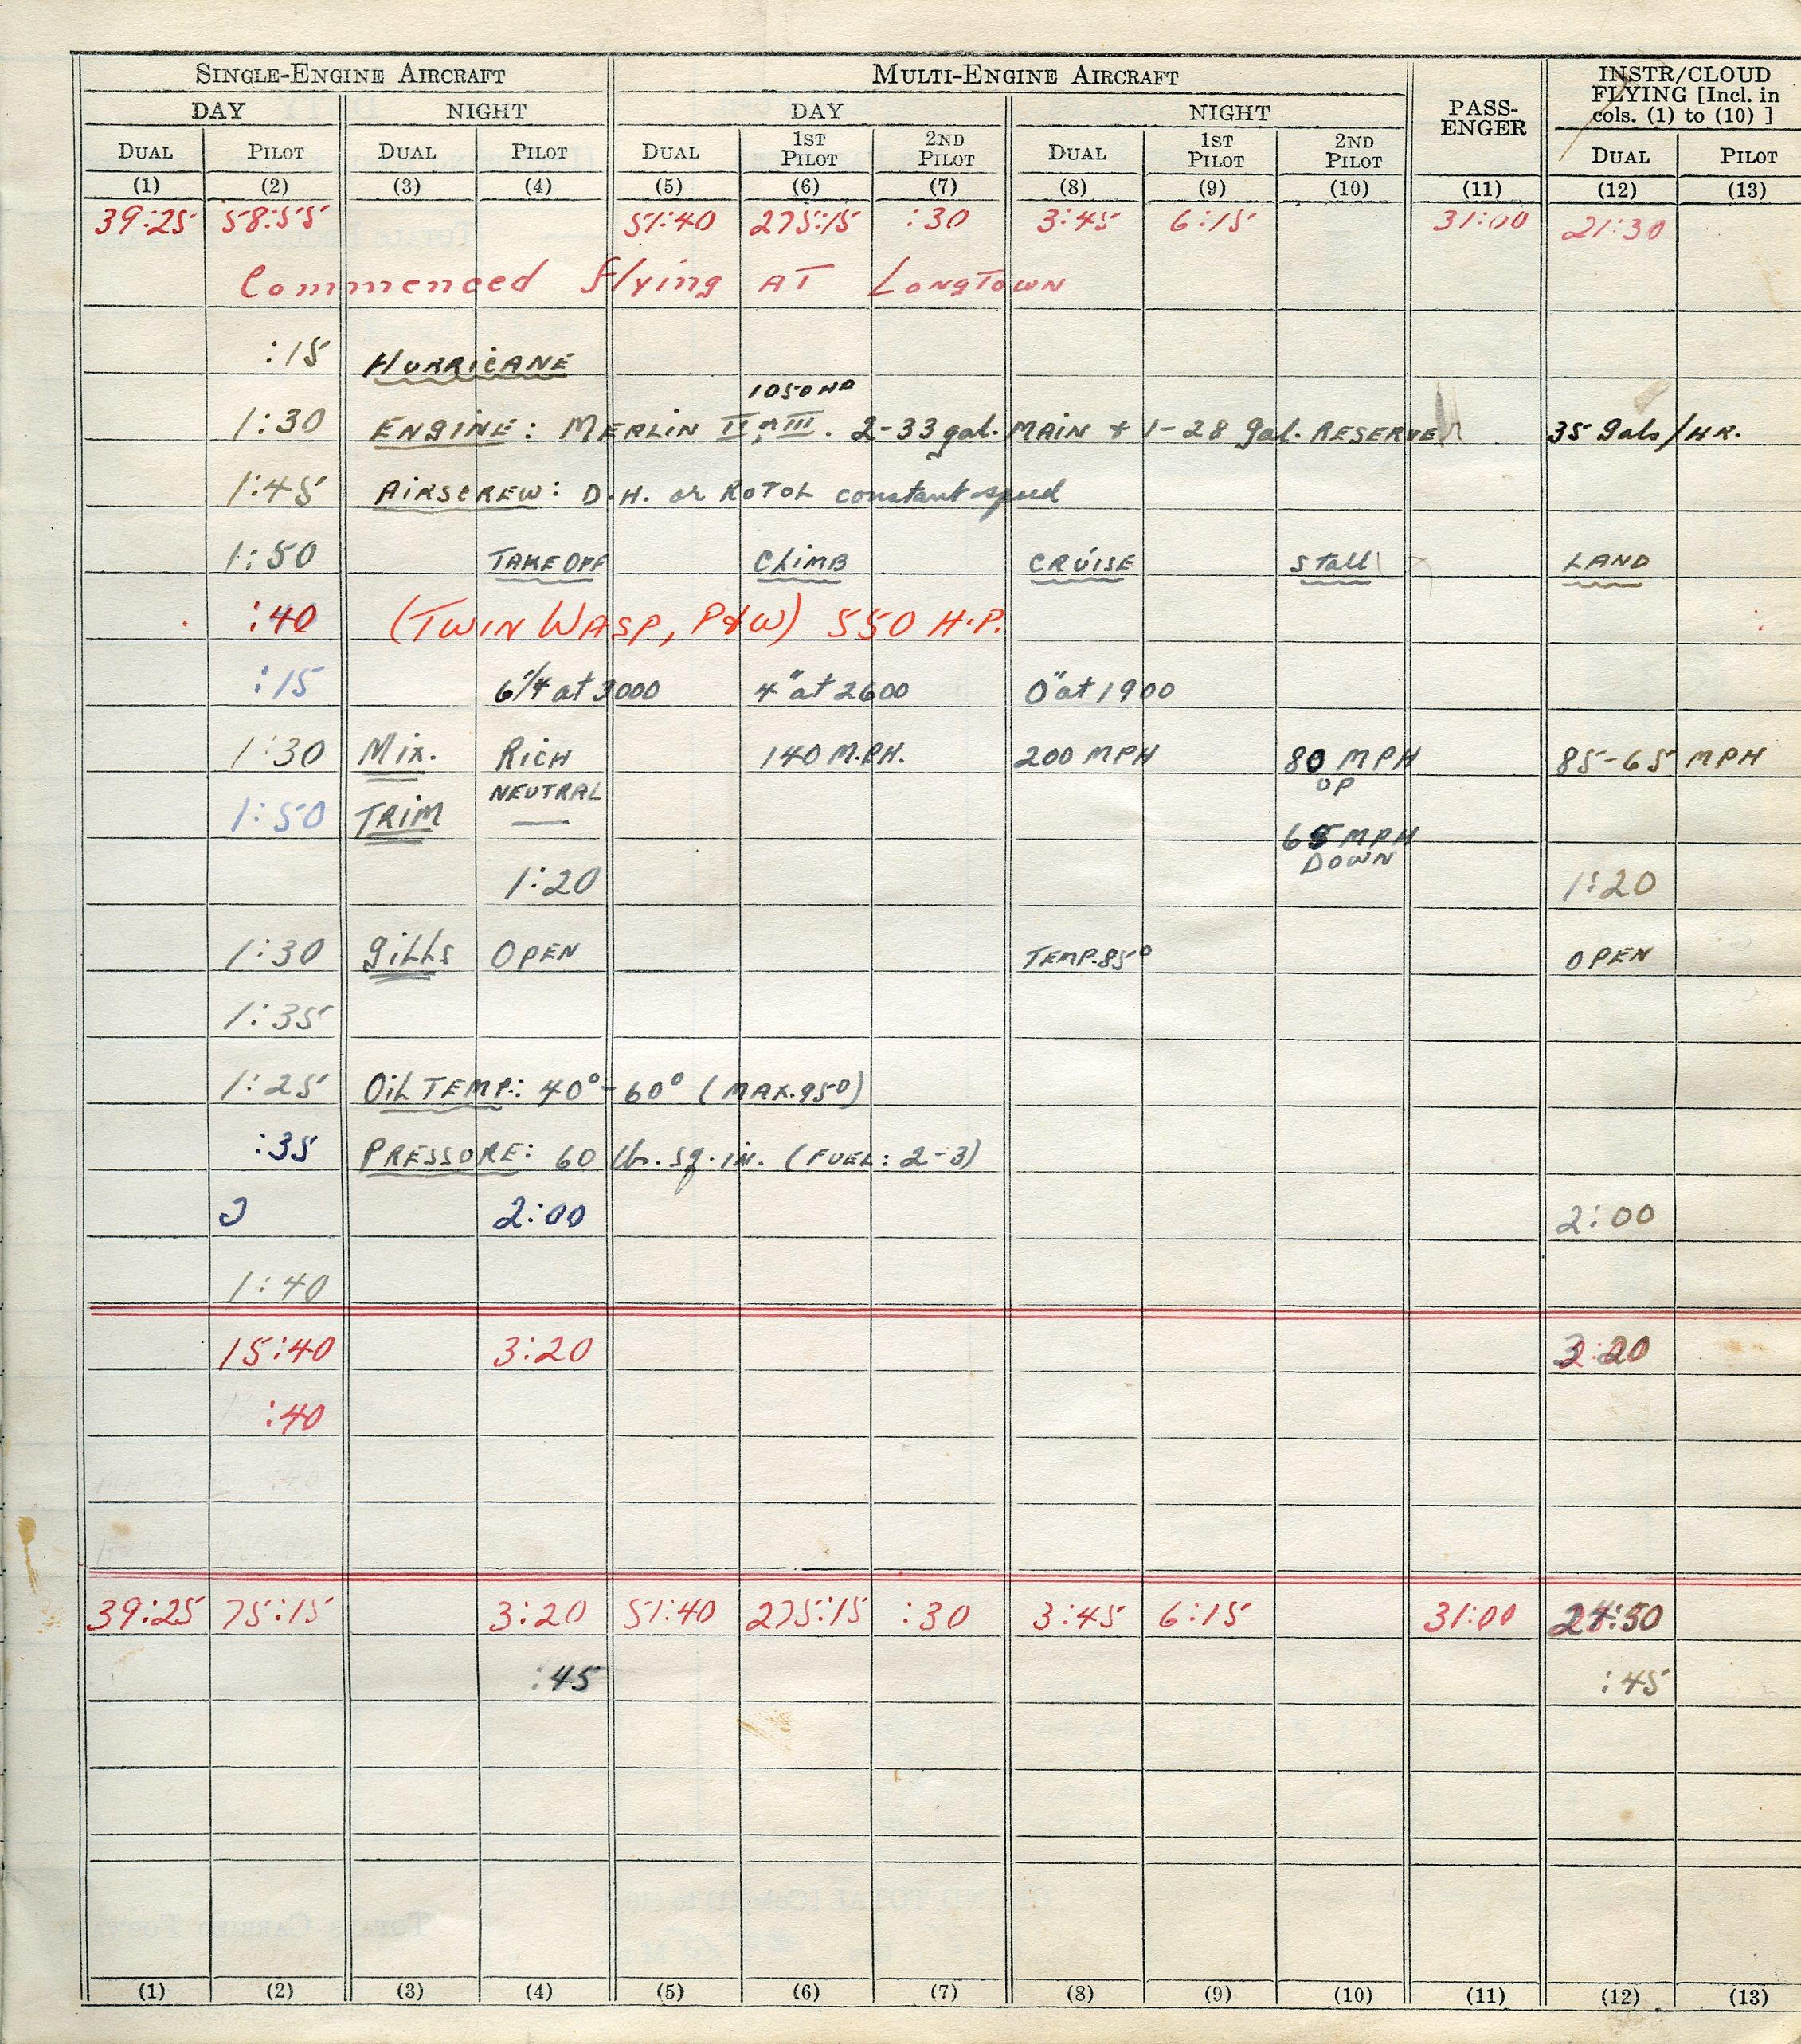 SINGLE-ENGINE AIRCRAFT MULTI-ENGINE AIRCRAFT PASS-ENGER INSTR/CLOUD FLYING [Incl. in cols. (1) to (10) ]
DAY NIGHT DAY NIGHT
DUAL PILOT DUAL PILOT DUAL 1ST PILOT 2ND PILOT DUAL 1ST PILOT 2ND PILOT DUAL PILOT
(1) (2) (3) (4) (5) (6) (7) (8) (9) (10) (11) (12) (13)
39:25 58:55 51:40 275:15 :30 3:45 6:15 31:00 21:30
Commenced flying AT LONGTOWN
:15 HURRICANE
1050 HP
1:30 ENGINE: MERLIN II or III. 2-33 gal. MAIN & 1-28 gal. RESERVE 35 gals/HR.
1:45 AIRSCREW: D.H. or ROTOL constant speed
1:50 TAKE OFF CLIMB CRUISE Stall LAND
:40 (TWIN WASP, P&W) 550 H.P.
:15 6 1/4 at 3000 4" at 2600 0" at 1900
1:30 Mix. RICH 140 M.P.H. 200 MPH 80 MPH 85-65 MPH
NEUTRAL UP
1:50 TRIM — 65 MPH
DOWN
1:20 1:20
1:30 gills OPEN TEMP. 85° OPEN
1:35
1:25 OIL TEMP.: 40°-60° (MAX. 95°)
:35 PRESSURE: 60 lb. sq. in. (FUEL: 2-3)
2:00 2:00
1:40
15:40 3:20 3:20
:40
39:25 75:15 3:20 51:40 275:15 :30 3:45 6:15 31:00 24:50
:45 :45
(1) (2) (3) (4) (5) (6) (7) (8) (9) (10) (11) (12) (13)